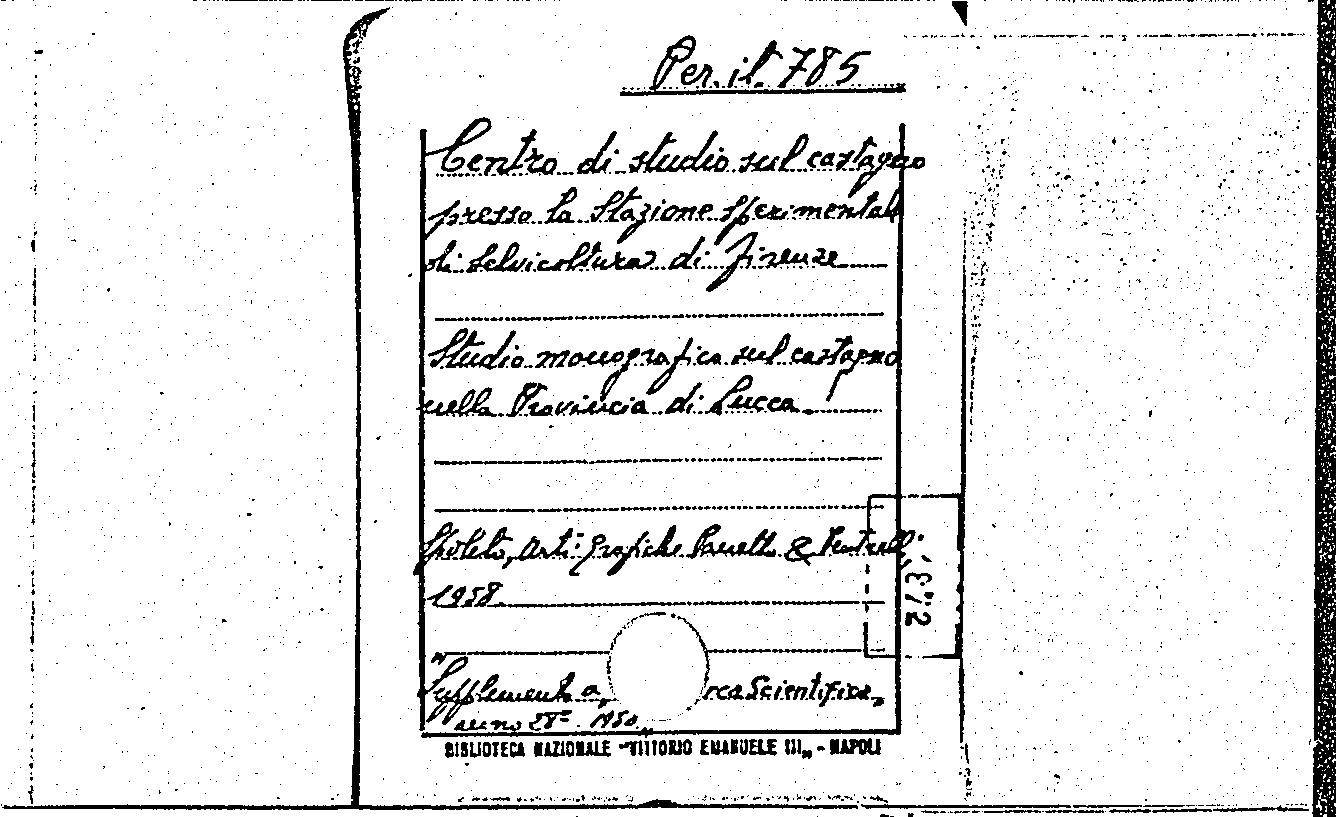 Per. it. 785
Centro di studio sul castagno
presso la Stazione sperimentale
di Selvicoltura di Firenze
Studio monografico sul castagno
nella Provincia di Lucca.
Spoleto, Arti Grafiche Panetto & Petrelli,
1958.
"Supplemento a rca Scientifica"
anno 1950
BIBLIOTECA NAZIONALE "VITTORIO EMANUELE III„ - NAPOLI